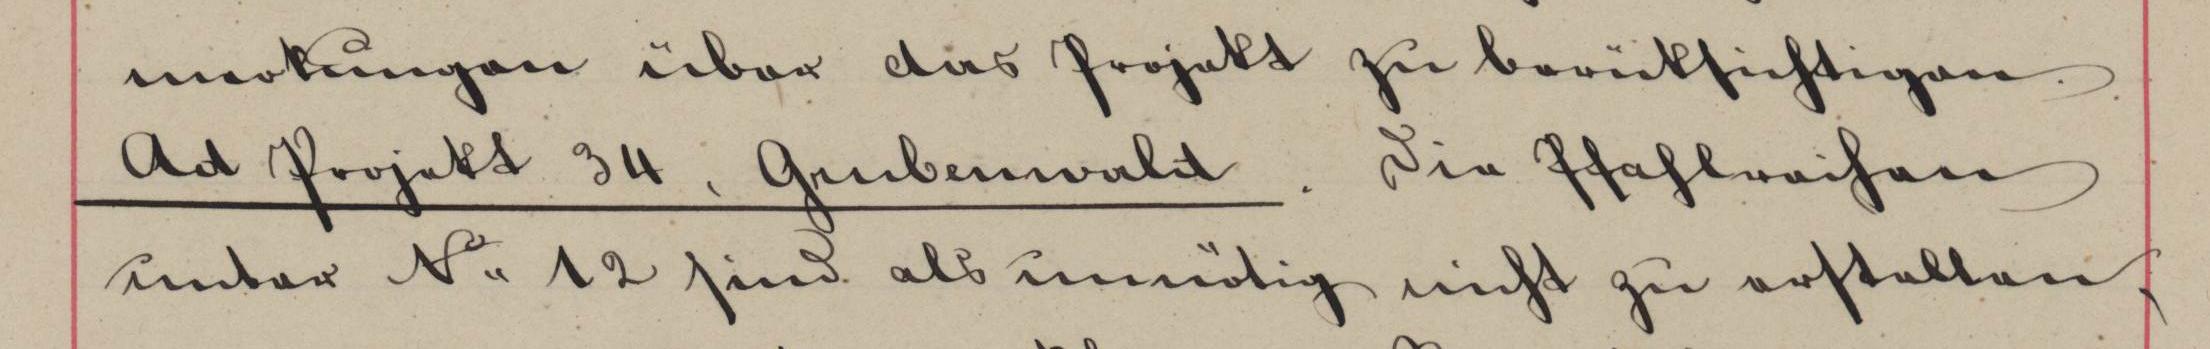 merkungen über das Projekt zu berüksichtigen.
Ad Projekt 34, Grubenwald. Die Pfahlreihen
unter No 12 sind als unnötig nicht zu erstellen,